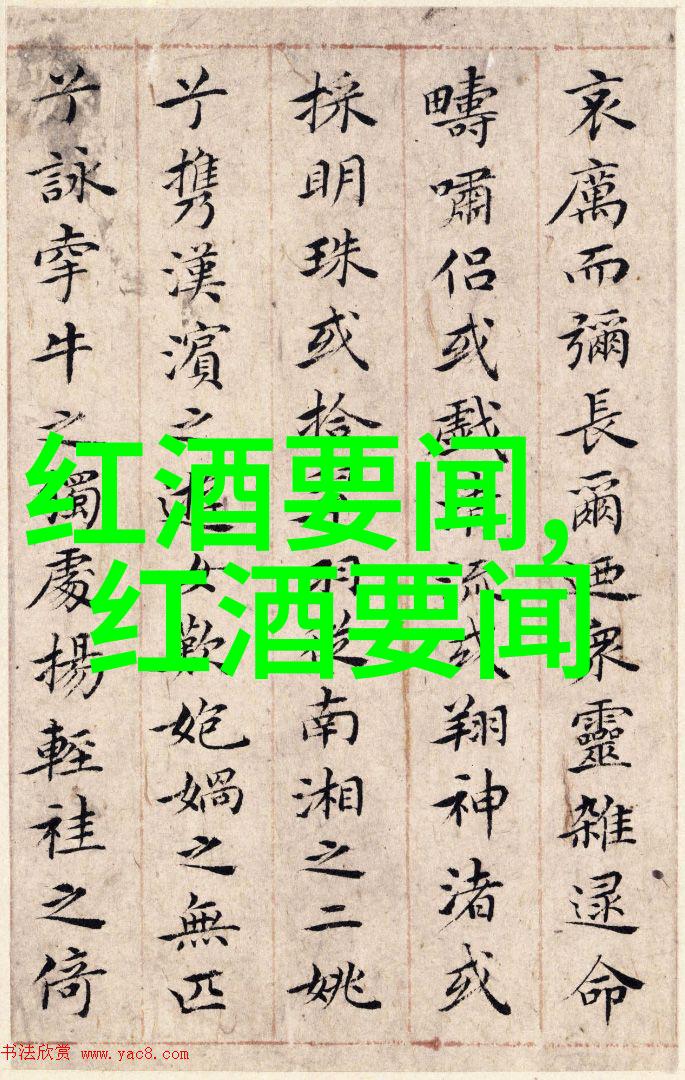 哀厲而彌長爾迺衆靈雜遝命
疇嘯侣或戲流或翔神渚或
採明珠或拾羽從南湘之二姚
兮攜漢濱之遊女歎媧之無匹
兮詠牽牛之獨處揚輕袿之倚
红酒要闻,
红酒要闻
书法欣赏 www.yac8.com